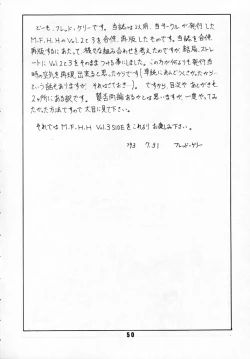 どーも、フレッド・ケリーです。当誌は以前、当サークルが発行した
M.F.H.HのVol.2と3を合併、再版したものです。当誌を合併
再版するにあたって、様々な組み合わせを考えたのですが、結局、ストレ
ートにVol.2と3をそのままつける事にしました。この方が何よりも発行当
時の空気を再現、出来ると思ったからです(単純にめんどうくさかったから…
という話もありますが、それはさておき…)。ですから、目次やあとがきも
2ヶ所にある訳です。賛否両論あるかとは思いますが、一度やってみ
たかった方法ですので大目に見て下さい。
それでは M.F.H.H Vol.3 SIDE をこれよりお楽しみ下さい。
'93 7.31 フレッド・ケリー
50